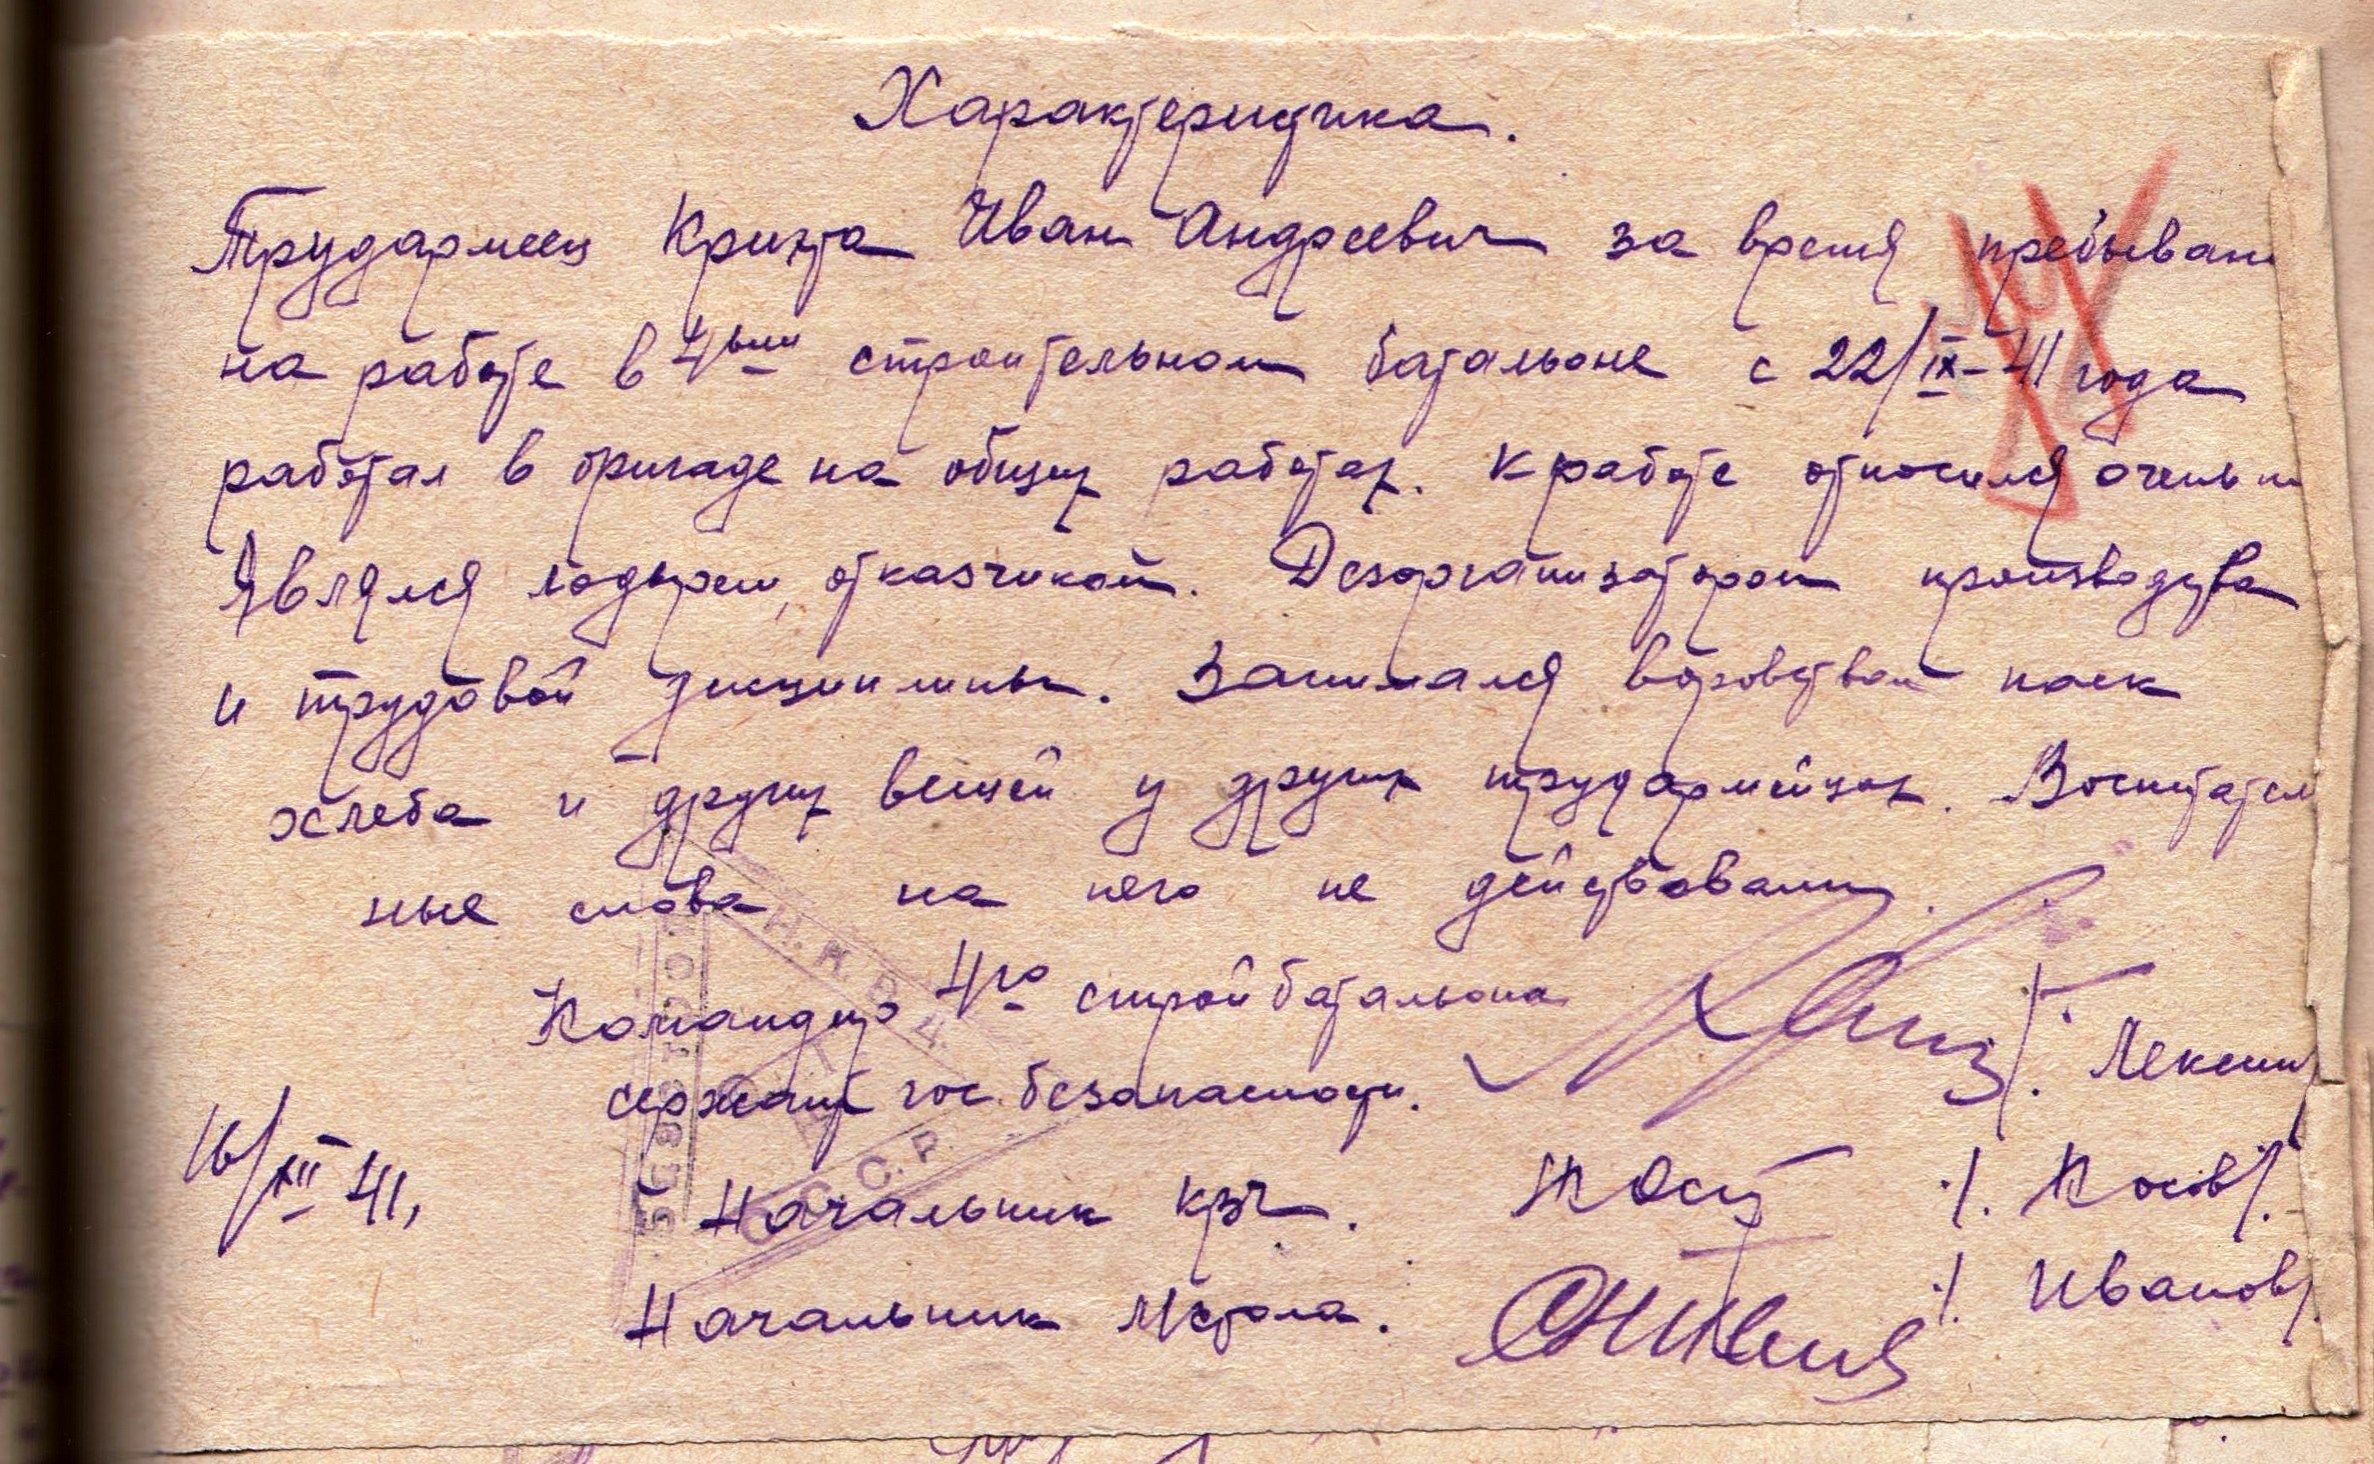 Характеристика.
Трудармеец Кринта Иван Андреевич за время пребывани
на работе в 4ым строительном батальоне с 22/IX-41 года
работал в бригаде на общих работах. К работе относился очень
Являлся лодырем, отказчиком. Дезорганизатором производства
и трудовой дисциплины. Занимался воровством паек
хлеба и других вещей у других трудармейцах. Воспитатель
ные слова на него не действовали.
Командир 4го стройбатальона
сержант гос. безопасности. /. Лексин/
16/XII 41, Начальник крч. /. Косов/.
Начальник Мстола. /. Иванов/.
Н.К.В.Д.
С.С.С.Р.